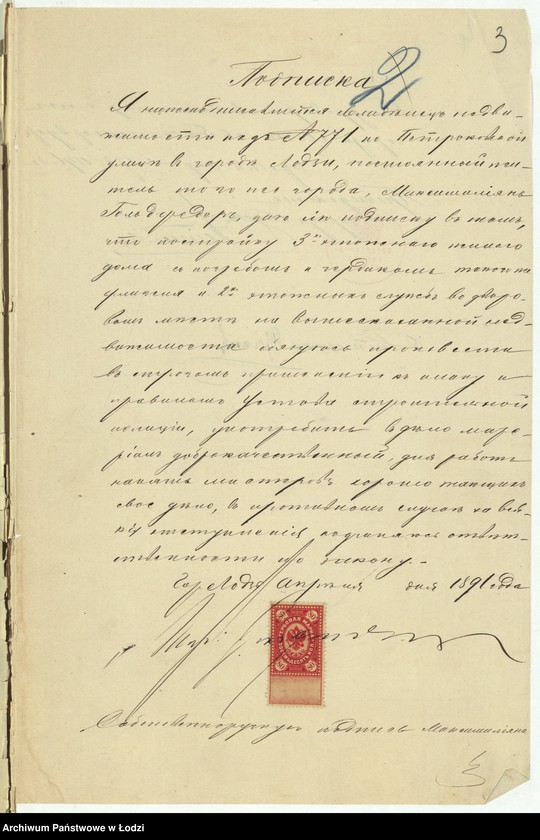 3
2
Подписка
Я нижеподписавшийся владелец недви-
жимости подъ № 771 по Петроковской
улицѣ въ городѣ Лодзи, постоянный жи-
тель того же города, Максимиліянъ
Гольдфедеръ, даю сію подписку въ томъ,
что постройку 3хъ этажнаго жилаго
дома съ погребомъ и чердакомъ такого же
флигеля и 2хъ этажныхъ службъ во дворо-
вомъ мѣстѣ на вышесказанной нед-
вижимости обязуюсь произвести
въ строгомъ примѣненіи къ плану и
правиламъ Устава строительной
полиціи, употребить въ дѣло мате-
ріалъ доброкачественный, для работъ
нанять мастеровъ хорошо знающихъ
свое дѣло, въ противномъ случаѣ за вся-
кія отступленія подвергаюсь отвѣт-
ственности по закону.
Гор. Лодзь Апрѣля дня 1891 года
Собственноручную подпись Максимиліяна
Archiwum Państwowe w Łodzi